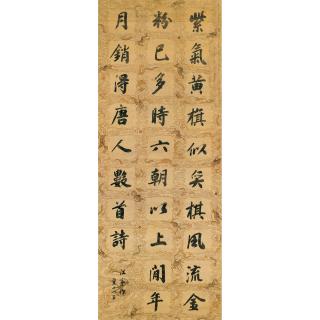 紫氣黃棋似矣棋風流金
粉已多時六朝以上閒年
月銷得唐人數首詩